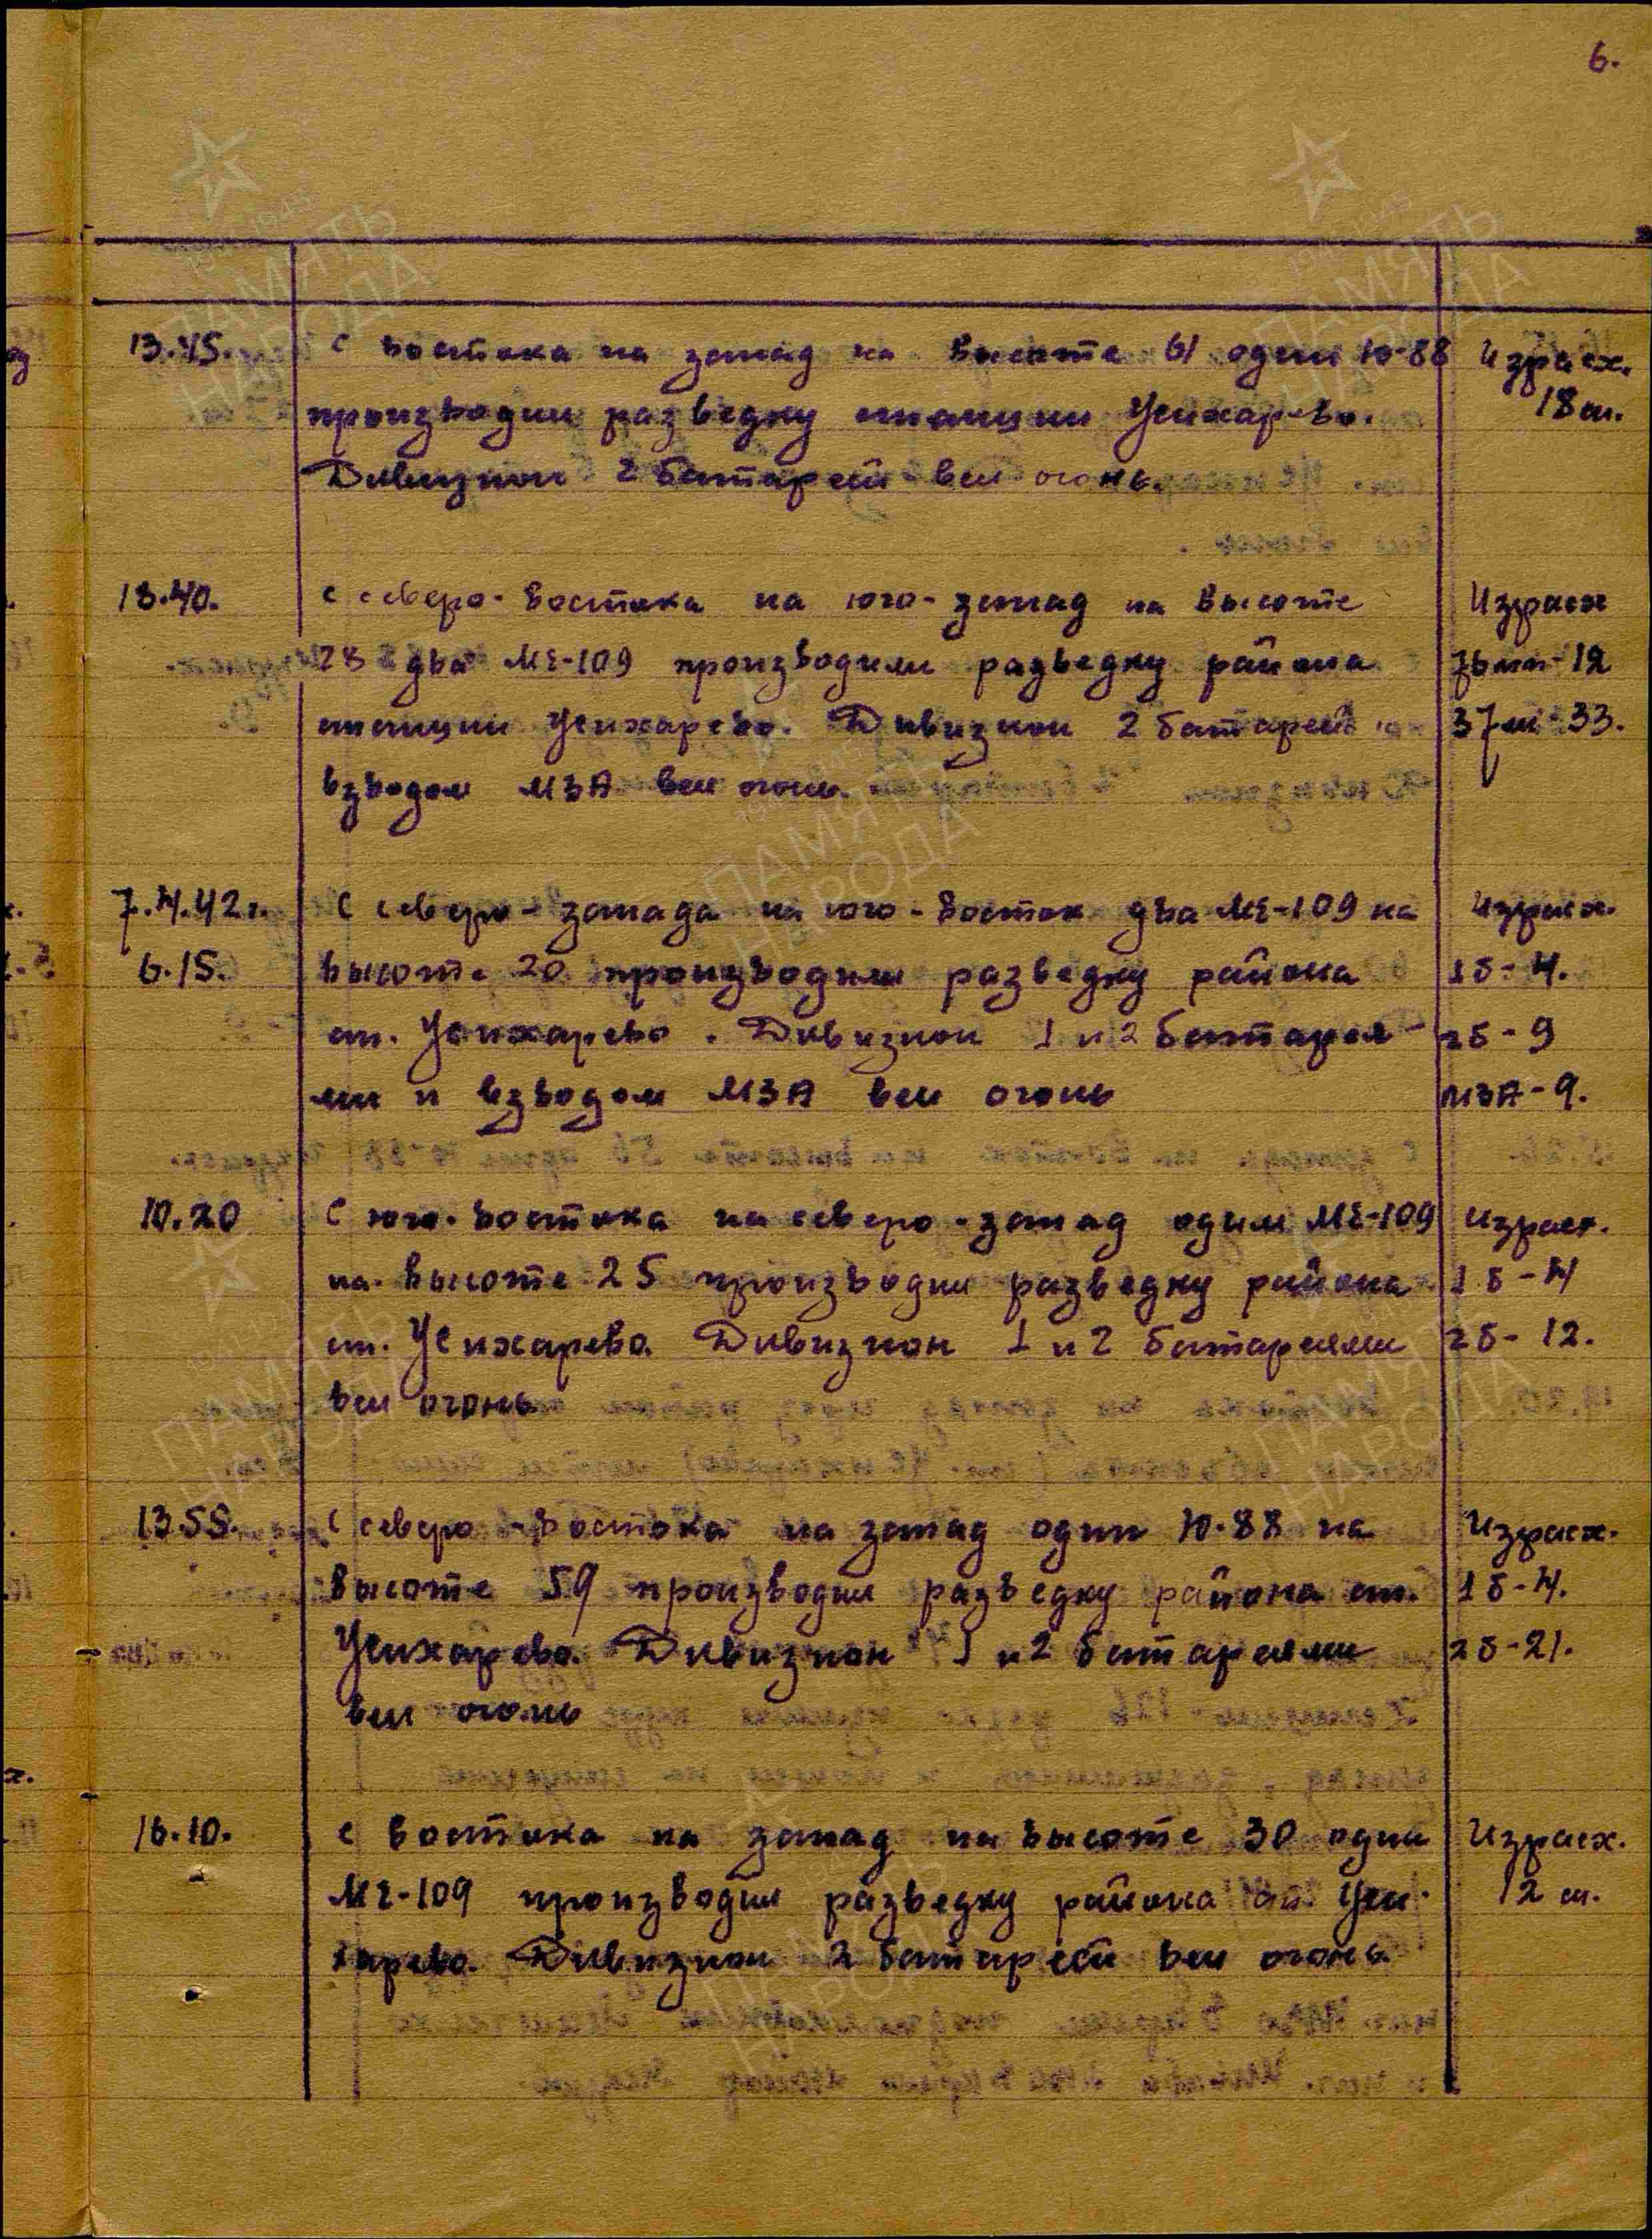 6.
13.45. с востока на запад на высоте 61 один Ю-88 Израсх.
производил разведку станции Усихарево. 18 ш.
Дивизион 2 батареей вел огонь.
18.40. с северо-востока на юго-запад на высоте Израсх
28 два МЕ-109 производили разведку района 76мм-12
станции Усихарево. Дивизион 2 батареей и 37м-33.
взводом МЗА вел огонь.
7.4.42г. С северо-запада на юго-восток два МЕ-109 на Израсх.
6.15. высоте 20 производили разведку района 1б-4.
ст. Усихарево. Дивизион 1 и 2 батарея- 2б-9
ми и взводом МЗА вел огонь МЗА-9.
10.20 С юго-востока на северо-запад один МЕ-109 Израсх.
на высоте 25 производил разведку района 1б-4
ст. Усихарево. Дивизион 1 и 2 батареями 2б-12.
вел огонь
13.55. С северо-востока на запад один Ю-88 на Израсх.
высоте 59 производил разведку района ст. 1б-4.
Усихарево. Дивизион 1 и 2 батареями 2б-21.
вел огонь
16.10. с востока на запад на высоте 30 один Израсх.
МЕ-109 производил разведку района ст. Уси- 12 ш.
харево. Дивизион 2 батареей вел огонь.
ПАМЯТЬ
НАРОДА